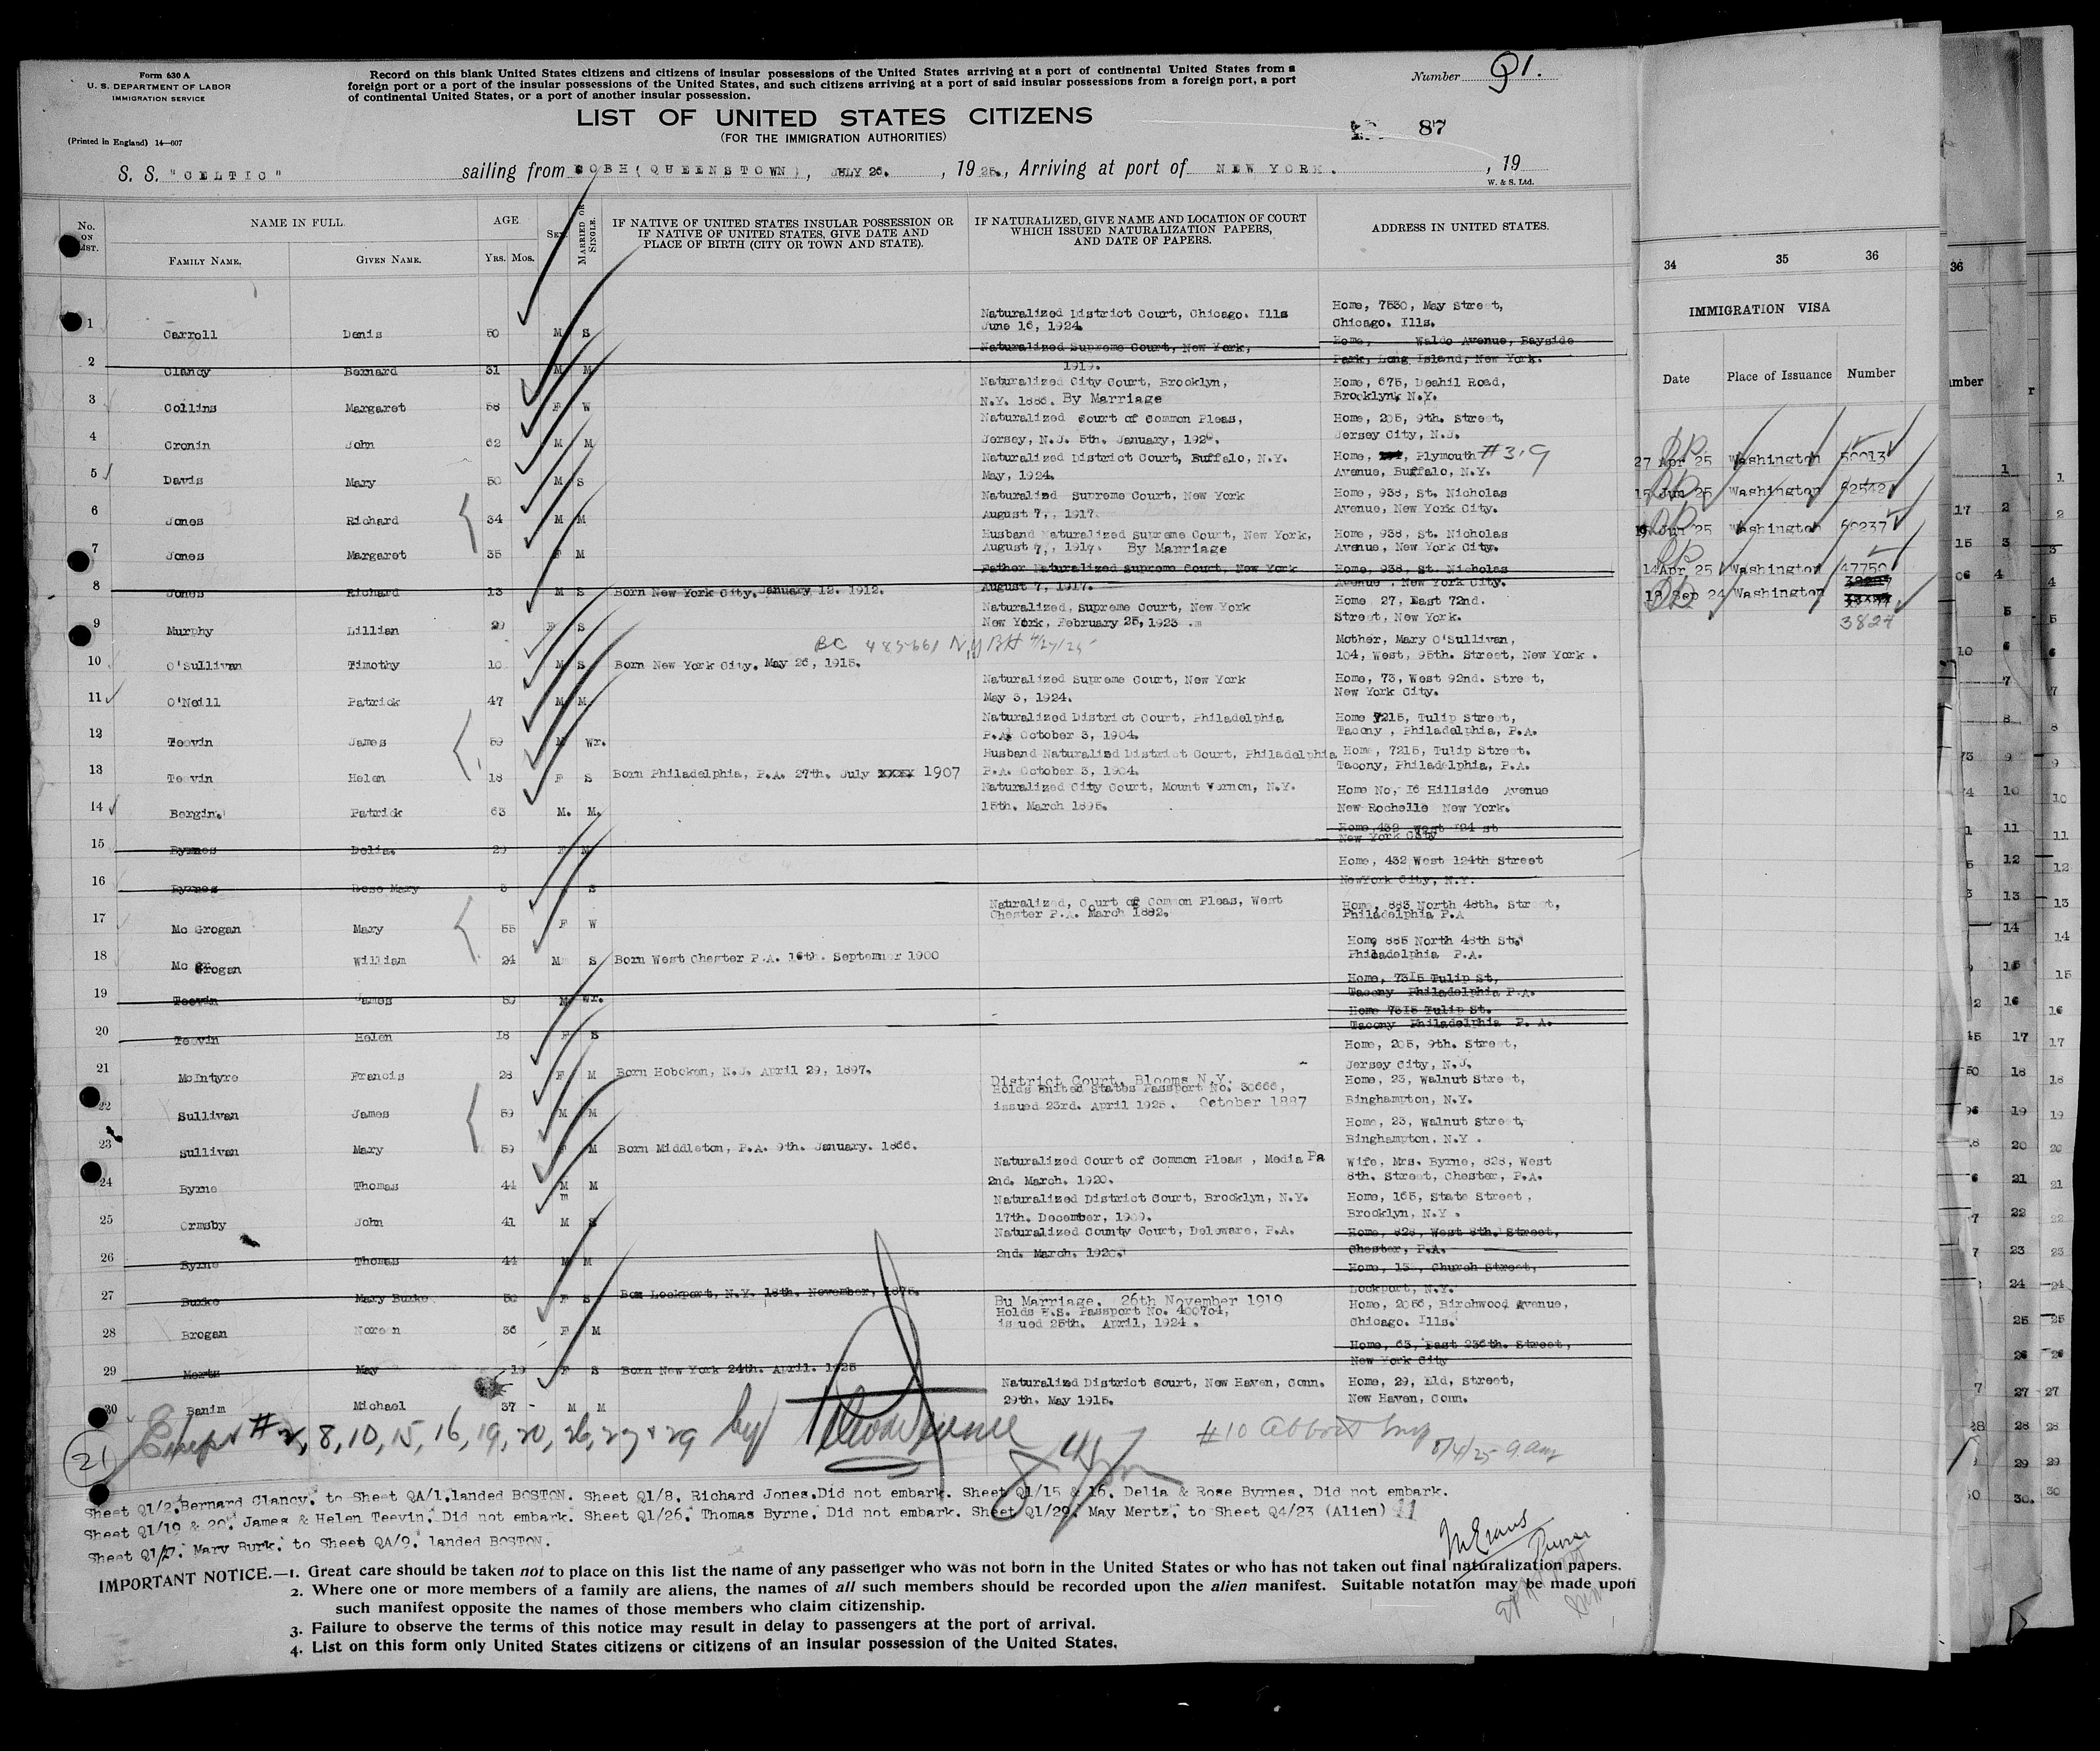 Form 630 A
U. S. DEPARTMENT OF LABOR
IMMIGRATION SERVICE
(Printed in England) 14—607
Record on this blank United States citizens and citizens of insular possessions of the United States arriving at a port of continental United States from a
foreign port or a port of the insular possessions of the United States, and such citizens arriving at a port of said insular possessions from a foreign port, a port
of continental United States, or a port of another insular possession.
Number Q1.
LIST OF UNITED STATES CITIZENS
(FOR THE IMMIGRATION AUTHORITIES)
87
S. S. "CELTIC" sailing from COBH (QUEENSTOWN), JULY 26, 1925., Arriving at port of NEW YORK. , 19
W. & S. Ltd.
No. ON LIST. NAME IN FULL. AGE SEX MARRIED OR SINGLE. IF NATIVE OF UNITED STATES INSULAR POSSESSION OR IF NATIVE OF UNITED STATES, GIVE DATE AND PLACE OF BIRTH (CITY OR TOWN AND STATE). IF NATURALIZED, GIVE NAME AND LOCATION OF COURT WHICH ISSUED NATURALIZATION PAPERS, AND DATE OF PAPERS. ADDRESS IN UNITED STATES.
FAMILY NAME. GIVEN NAME. YRS. MOS.
1 Carroll Denis 50 M S Naturalized District Court, Chicago. Ills June 16, 1924. Home, 7530, May Street, Chicago. Ills.
2 Clancy Bernard 31 M M Naturalized Supreme Court, New York, 1919. Home, Waldo Avenue, Bayside Park, Long Island, New York.
3 Collins Margaret 58 F W Naturalized City Court, Brooklyn, N.Y. 1886. By Marriage Home, 675, Deahil Road, Brooklyn, N.Y.
4 Cronin John 62 M M Naturalized Court of Common Pleas, Jersey, N.J. 5th. January, Home, 205, 9th. Street, Jersey City, N.J.
5 Davis Mary 50 M S Naturalized District Court, Buffalo, N.Y. May, 1924. Home, Plymouth #319 Avenue, Buffalo, N.Y.
6 Jones Richard 34 M M Naturalized Supreme Court, New York August 7, 1917. Home, 938, St. Nicholas Avenue, New York City.
7 Jones Margaret 35 F M Husband Naturalized Supreme Court, New York, August 7, 1917. By Marriage Home, 938, St. Nicholas Avenue, New York City.
8 Jones Richard 13 M S Born New York City. January 12. 1912. Father Naturalized Supreme Court, New York August 7, 1917. Home, 938, St. Nicholas Avenue, New York City.
9 Murphy Lillian 29 F S Naturalized, Supreme Court, New York New York, February 25, 1923. Home 27, East 72nd. Street, New York.
BC 485661 NYBH 4/27/25
10 O'Sullivan Timothy 10 M S Born New York City. May 26, 1915. Mother, Mary O'Sullivan, 104, West, 95th. Street, New York.
11 O'Neill Patrick 47 M M Naturalized Supreme Court, New York May 3, 1924. Home, 73, West 92nd. Street, New York City.
12 Teevin James 59 M Wr. Naturalized District Court, Philadelphia P.A. October 3, 1904. Home 7215, Tulip Street, Tacony, Philadelphia, P.A.
13 Teevin Helen 18 F S Born Philadelphia, P.A. 27th. July 1907 Husband Naturalized District Court, Philadelphia P.A. October 3, 1904. Home, 7215, Tulip Street. Tacony, Philadelphia, P.A.
14 Bergin. Patrick 63 M. M. Naturalized City Court, Mount Vernon, N.Y. 15th. March 1895. Home No, 16 Hillside Avenue New Rochelle New York.
15 Byrnes Delia. 29 F M Home 432 West 124 st New York City
16 Byrnes Rose Mary S Home, 432 West 124th Street NewYork City, N.Y.
17 Mc Grogan Mary 55 F W Natralized, Court of Common Pleas, West Chester P.A. March 1892. Home, 885 North 48th. Street, Philadelphia P.A
18 Mc Grogan William 24 M S Born West Chester P.A. 16th. Septemner 1900 Home 885 North 48th St. Philadelphia P.A.
19 Teevin James 59 M Wr. Home, 7315 Tulip St, Tacony Philadelphia P.A.
20 Teevin Helen 18 F S Home 7315 Tulip St. Tacony Philadelphia P. A.
21 McIntyre Francis 28 F M Born Hoboken, N.J. April 29, 1897. Home, 205, 9th. Street, Jersey City, N.J.
22 Sullivan James 59 M M District Court, Blooms N.Y. Holds United States Passport No. 50666, issued 23rd. April 1925. October 1887 Home, 23, Walnut Street, Binghampton, N.Y.
23 Sullivan Mary 59 F M Born Middleton, P.A. 9th. January. 1866. Home, 23, Walnut Street, Binghampton, N.Y.
24 Byrne Thomas 44 M M Naturalized Court of Common Pleas, Media Pa 2nd. March. 1920. Wife, Mrs. Byrne, 828, West 8th. Street, Chester, P.A.
25 Ormsby John 41 M S Naturalized District Court, Brooklyn, N.Y. 17th. December, 1909. Home, 165, State Street, Brooklyn, N.Y.
26 Byrne Thomas 44 M M Naturalized County Court, Deleware, P.A. 2nd. March. 1920. Home, 828, West 8th. Street, Chester, P.A.
27 Burke Mary Burke 50 F S Bon Lockport, N.Y. 18th. November, 1875. Home, Church Street, Lockport, N.Y.
28 Brogan Noreen 36 F M Bu Marriage. 26th November 1919 Holds U.S. Passport No. 400704, issued 25th. April, 1924. Home, 2056, Birchwood Avenue, Chicago. Ills.
29 Mertz May 19 F S Born New York 24th. April. 1925 Home, 63, East 236th. Street, New York City
30 Banim Michael 37 M M Naturalized District Court, New Haven, Conn. 29th. May 1915. Home, 29, Eld, Street, New Haven, Conn.
21 Except # 2, 8, 10, 15, 16, 19, 20, 26, 27 & 29 by
#10 Abbott Insp 8/4/25 9 am
Sheet Q1/2. Bernard Clancy. to Sheet QA/1, landed BOSTON. Sheet Q1/8. Richard Jones. Did not embark. Sheet Q1/15 & 16. Delia & Rose Byrnes. Did not embark.
Sheet Q1/19 & 20. James & Helen Teevin. Did not embark. Sheet Q1/26. Thomas Byrne. Did not embark. Sheet Q1/29. May Mertz. to Sheet Q4/23 (Alien) 11
Sheet Q1/27. Mary Burk. to Sheet QA/9. landed BOSTON.
IMPORTANT NOTICE.—1. Great care should be taken not to place on this list the name of any passenger who was not born in the United States or who has not taken out final naturalization papers.
2. Where one or more members of a family are aliens, the names of all such members should be recorded upon the alien manifest. Suitable notation may be made upon
such manifest opposite the names of those members who claim citizenship.
3. Failure to observe the terms of this notice may result in delay to passengers at the port of arrival.
4. List on this form only United States citizens or citizens of an insular possession of the United States.
34 35 36
IMMIGRATION VISA
Date Place of Issuance Number
27 Apr 25 Washington 50013
15 Jun 25 Washington 62542
Jun 25 Washington 60237
14 Apr 25 Washington 47750
18 Sep 24 Washington
3824